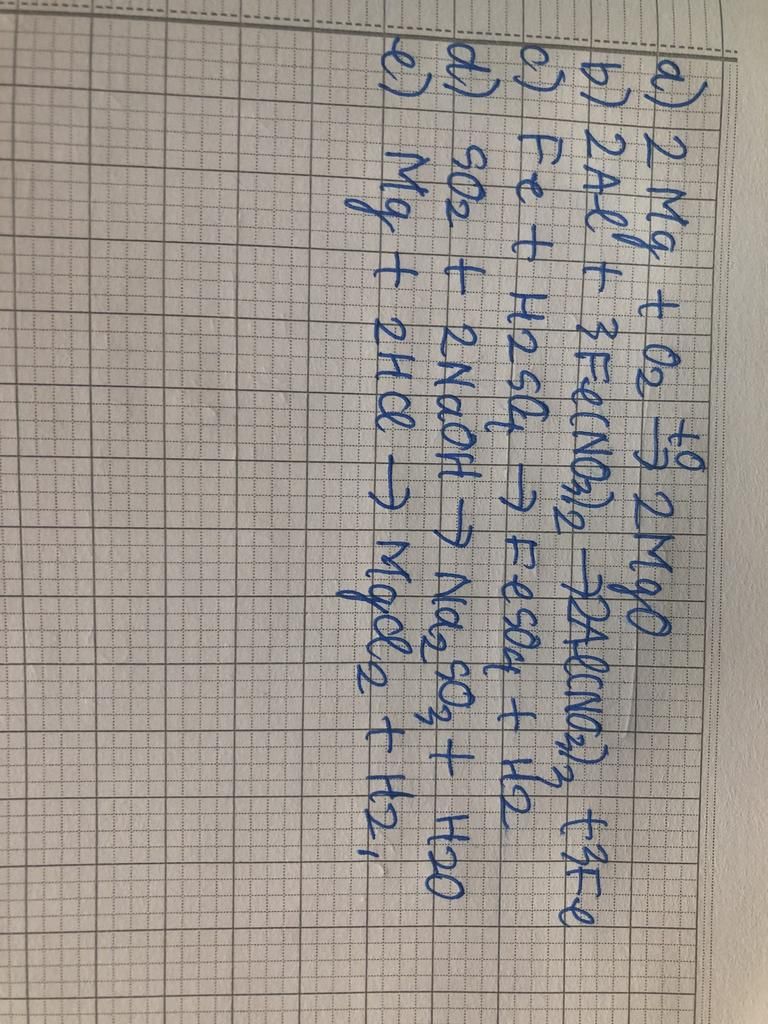 a) 2Mg + O2 t0→ 2MgO
b) 2Al + 3Fe(NO3)2 → 2Al(NO3)3 + 3Fe
c) Fe + H2SO4 → FeSO4 + H2
d) SO2 + 2NaOH → Na2SO3 + H2O
e) Mg + 2HCl → MgCl2 + H2,